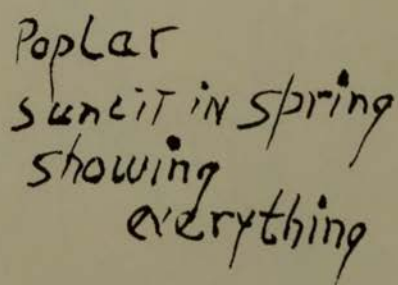 Poplar
sunlit in spring
showing
everything